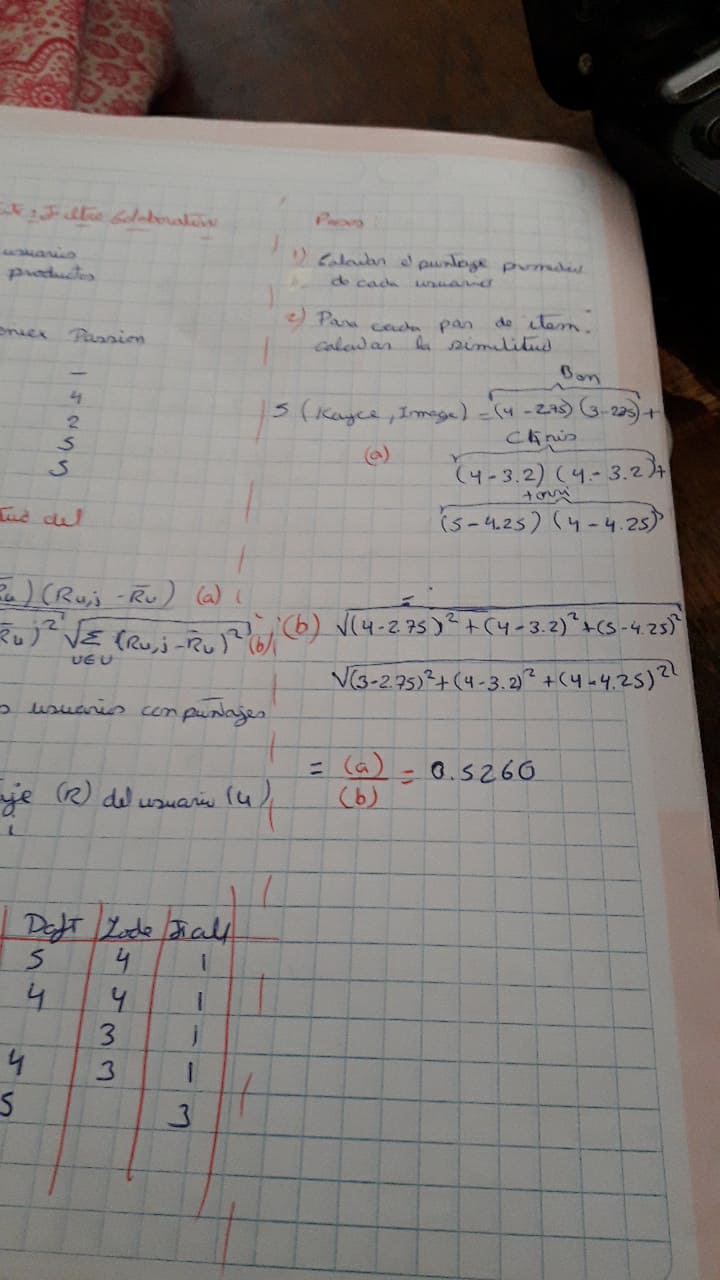 Filtro Colaborativo
usuario
productos
Passion
–
4
2
5
5
del
(Ru,j - R̄u) (a)
√Σ (Ru,j - R̄u)² (b)
u∈U
usuarios con puntajes
(R) del usuario (u)
i
Daft | Lode | Ball
5 4 1
4 4 1
3 1
4 3 1
5 3
Pasos
1) Calcular el puntaje promedio
de cada usuario
2) Para cada par de item:
calcular la similitud
Ban
S (Kayce, Image) = (4 - 2.75) (3 - 2.75) +
Chris
(a) (4 - 3.2) (4 - 3.2) +
(5 - 4.25) (4 - 4.25)
(b) √(4 - 2.75)² + (4 - 3.2)² + (5 - 4.25)²
√(3 - 2.75)² + (4 - 3.2)² + (4 - 4.25)²
= (a) = 0.5260
(b)